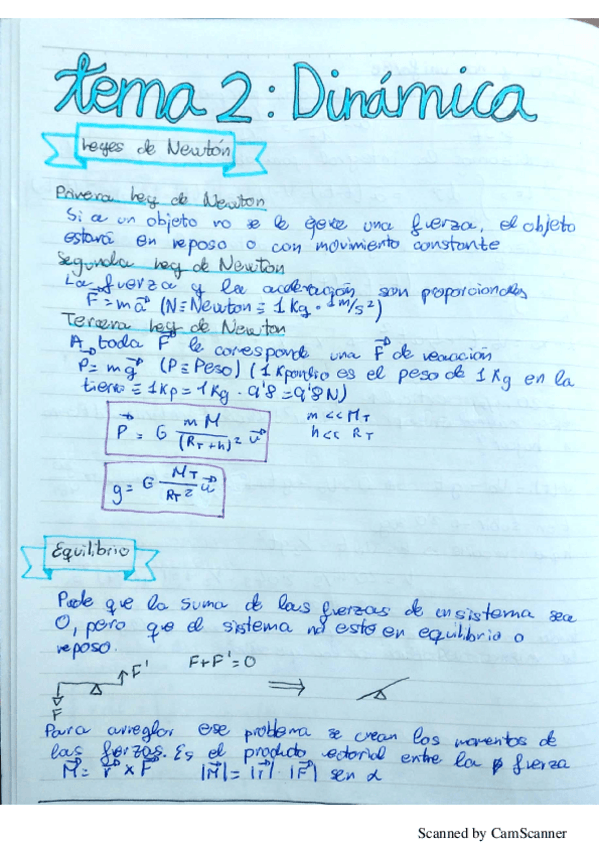 tema 2: Dinámica
Leyes de Newtón
Primera Ley de Newton
Si a un objeto no se le ejerce una fuerza, el objeto
estará en reposo o con movimiento constante
Segunda Ley de Newton
La fuerza y la aceleración son proporcionales
F⃗ = m a⃗ (N ≡ Newton ≡ 1 Kg · 1 m/s²)
Tercera Ley de Newton
A toda F⃗ le corresponde una F⃗ de reacción
P⃗ = m g⃗ (P ≡ Peso) (1 Kpondio es el peso de 1 Kg en la
tierra ≡ 1 Kp = 1 Kg · 9'8 = 9'8 N)
P⃗ = G m M / (R_T + h)² u⃗ m << M_T
h << R_T
g = G M_T / R_T² u⃗
Equilibrio
Puede que la suma de las fuerzas de un sistema sea
0, pero que el sistema no esté en equilibrio o
reposo.
F' F+F'=0
F
Para arreglar ese problema se crean los momentos de
las fuerzas. Es el producto ectorial entre la fuerza
M⃗ = r⃗ × F⃗ |M⃗| = |r⃗| · |F⃗| sen α
Scanned by CamScanner